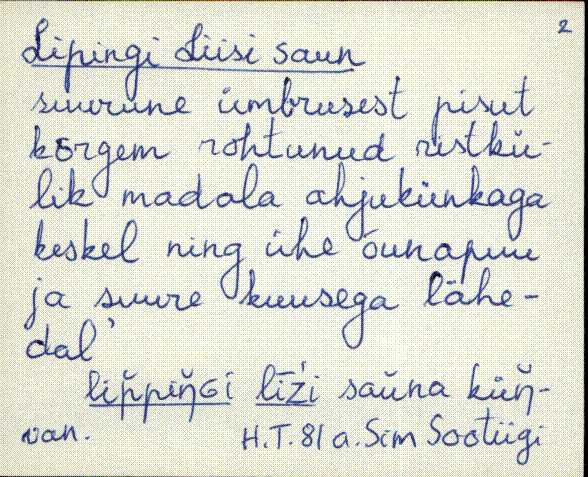 2
Lipingi Liisi saun
suurune ümbrusest pisut
kõrgem rohtunud ristkü-
lik madala ahjukünkaga
keskel ning ühe õunapuu
ja suure kuusega lähe-
dal’
lip̆piŋ̆ɢi līźi saŭna küŋ̆-
van. H.T. 81 a. Sim Sootiigi